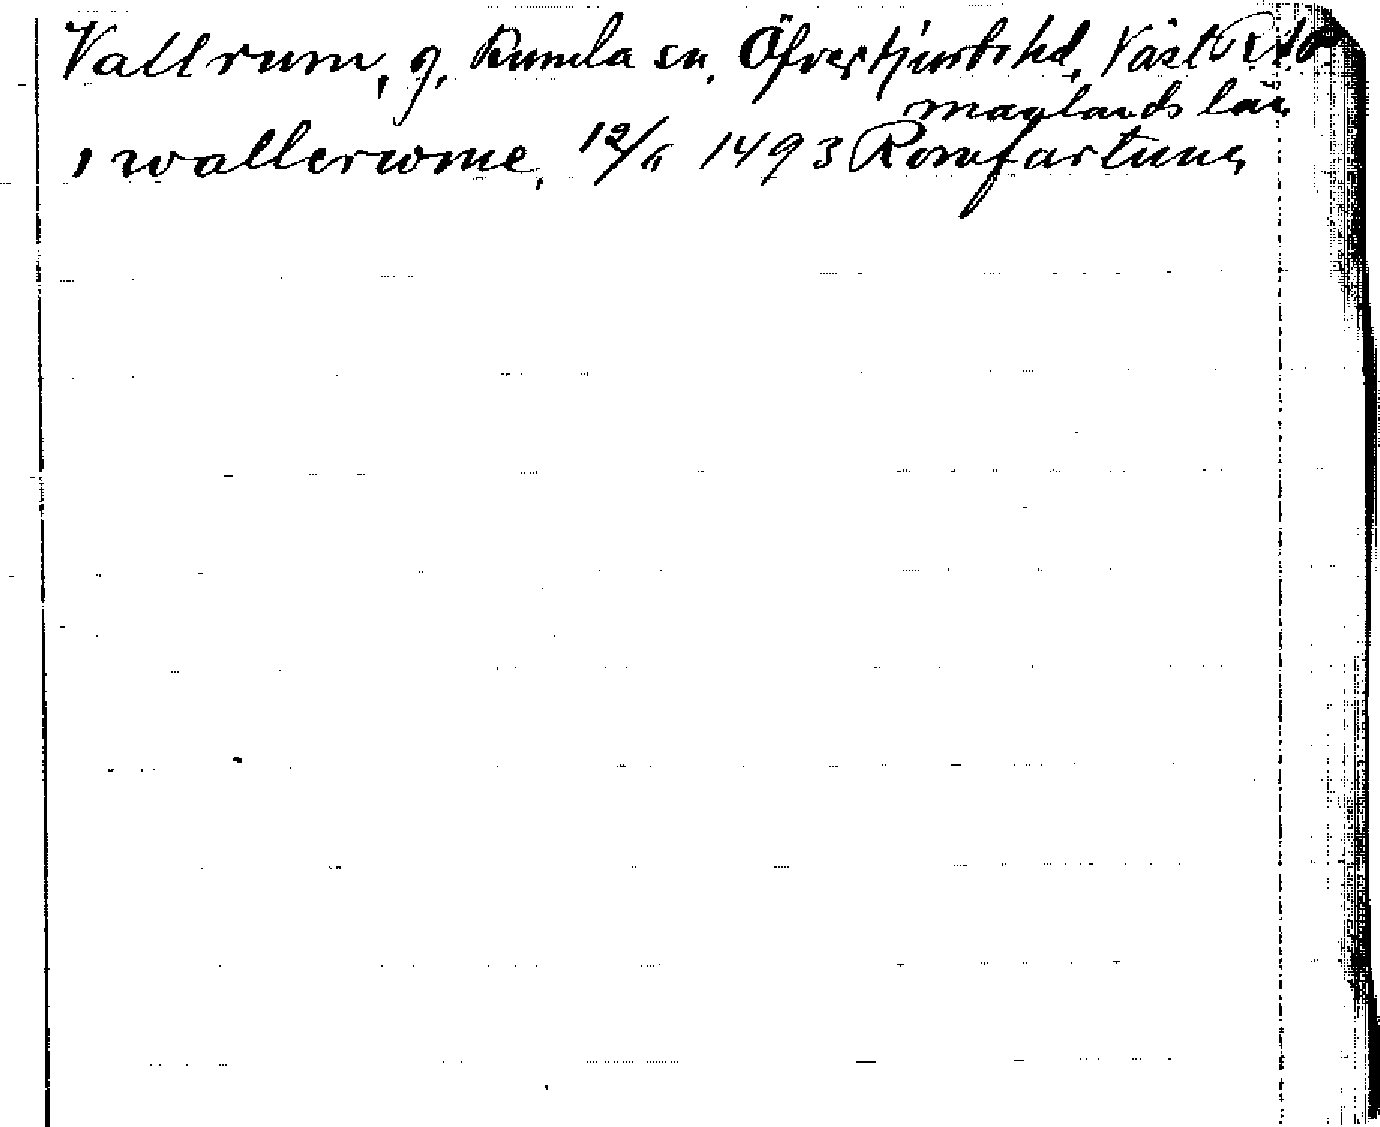 Vallrum, g, Kumla sn, Öfvertjurbo hd, Väst
manlands län
i wallerwme, 12/6 1493 Romfartuna